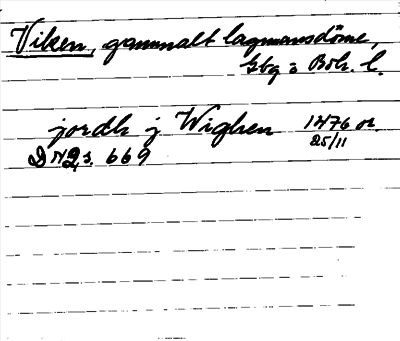 Viken, gammalt lagmansdöme,
Gbg o Boh. l.
jordh j Wighen 1476 or.
25/11
DN 2, s. 669